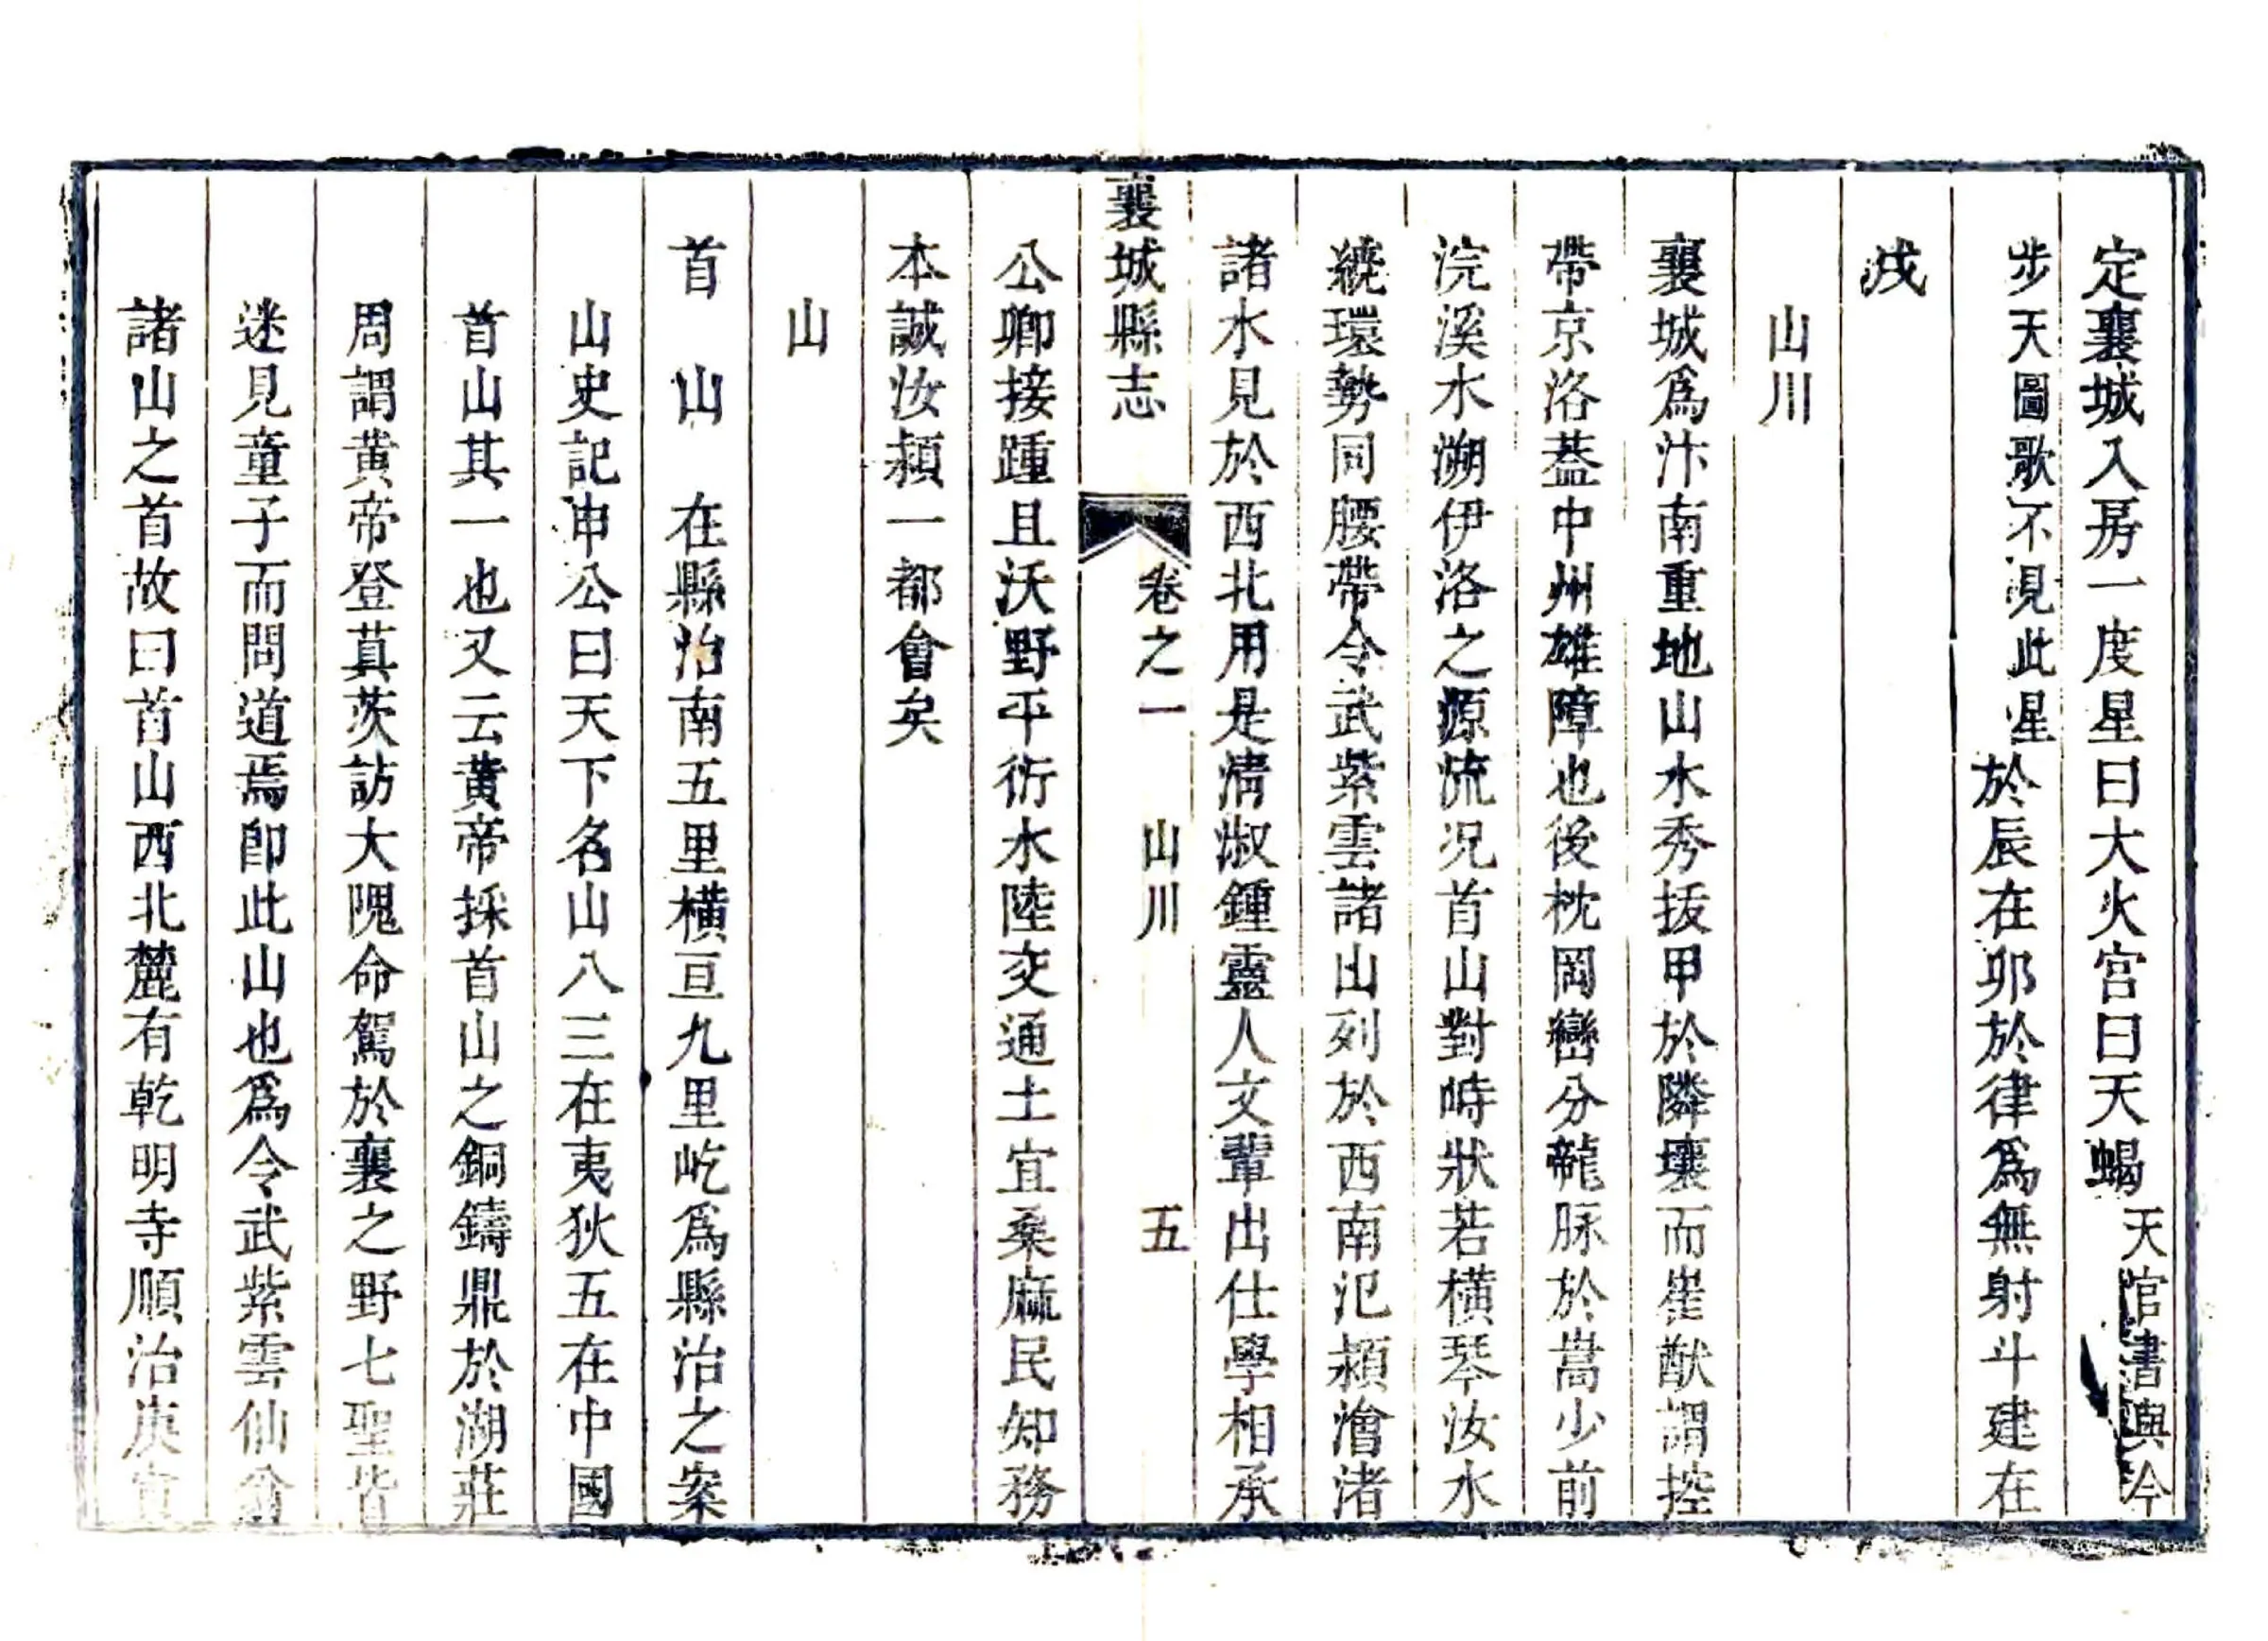 定襄城入房一度星曰大火宮曰天蝎天官書與今
步天圖歌不見此星於辰在卯於律爲無射斗建在
戌
山川
襄城爲汴南重地山水秀拔甲於隣壤而崔猷謂控
帶京洛葢中州雄障也後枕岡巒分龍脉於嵩少前
浣溪水溯伊洛之源流况首山對峙狀若橫琴汝水
繞環勢同腰帶令武紫雲諸山列於西南汜潁澮渚
諸水見於西北用是淸淑鍾靈人文輩出仕學相承
襄城縣志 卷之一 山川 五
公卿接踵且沃野平衍水陸交通土宜桑麻民知務
本誠汝潁一都會矣
山
首山 在縣治南五里橫亘九里屹爲縣治之案
山史記申公曰天下名山八三在夷狄五在中國
首山其一也又云黃帝採首山之銅鑄鼎於湖莊
周謂黃帝登具茨訪大隗命駕於襄之野七聖皆
迷見童子而問道焉卽此山也爲令武紫雲仙翁
諸山之首故曰首山西北麓有乾明寺順治庚寅